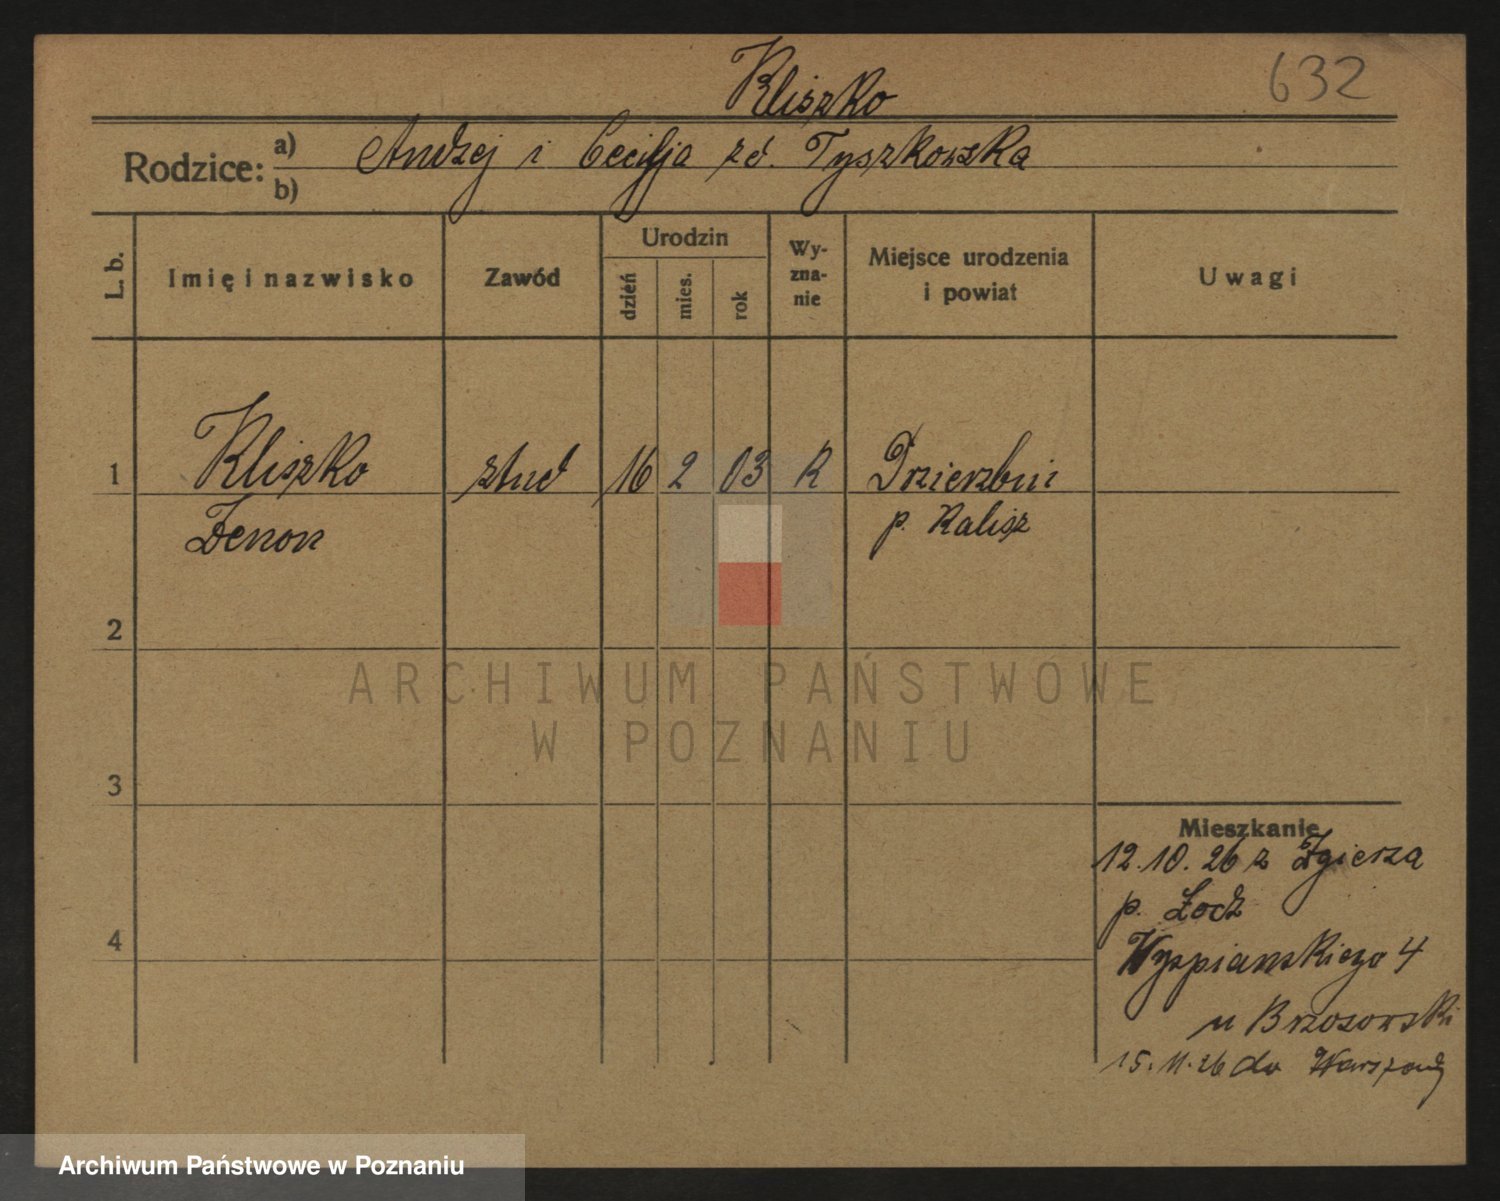 Kliszko
632
Rodzice:
a) Andzej i Cecilja zd. Tyszkowska
b)
L. b.
Imię i nazwisko
Zawód
Urodzin
dzień
mies.
rok
Wy-
zna-
nie
Miejsce urodzenia
i powiat
Uwagi
1 Kliszko stud 16 2 03 R
Zenon
p. Kalisz
2
3
4
Mieszkanie
12.10.26 z Zgierza
p. Łodz
Wyspianskiego 4
u Brzosowski
15.11.26 do Warszawy
ARCHIWUM PAŃSTWOWE
W POZNANIU
Archiwum Państwowe w Poznaniu